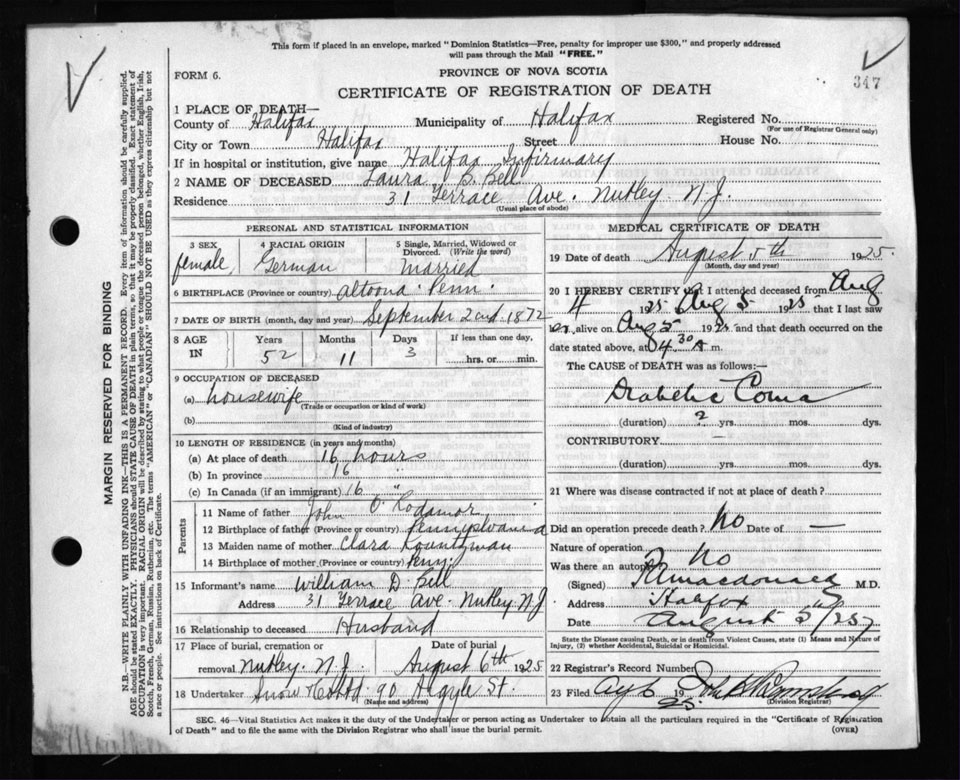 This form if placed in an envelope, marked "Dominion Statistics—Free, penalty for improper use $300," and properly addressed
will pass through the Mail "FREE."
FORM 6.
PROVINCE OF NOVA SCOTIA
347
CERTIFICATE OF REGISTRATION OF DEATH
1 PLACE OF DEATH—
County of Halifax Municipality of Halifax Registered No.
(For use of Registrar General only)
City or Town Halifax Street House No.
If in hospital or institution, give name Halifax Infirmary
2 NAME OF DECEASED Laura B. Bell
Residence 31 Terrace Ave. Nutley N.J.
(Usual place of abode)
PERSONAL AND STATISTICAL INFORMATION
3 SEX 4 RACIAL ORIGIN 5 Single, Married, Widowed or
Divorced. (Write the word)
female German Married
6 BIRTHPLACE (Province or country) Altoona Penn.
7 DATE OF BIRTH (month, day and year) September 2nd 1872
8 AGE Years Months Days If less than one day,
IN 52 11 3 hrs. or min.
9 OCCUPATION OF DECEASED
(a) housewife
(Trade or occupation or kind of work)
(b)
(Kind of industry)
10 LENGTH OF RESIDENCE (in years and months)
(a) At place of death 16 hours
(b) In province 16 "
(c) In Canada (if an immigrant) 16 "
Parents
11 Name of father John O. Rodamor
12 Birthplace of father (Province or country) Pennsylvania
13 Maiden name of mother Clara Kountzman
14 Birthplace of mother (Province or country) Penn.
15 Informant's name William D. Bell
Address 31 Terrace Ave. Nutley N.J
16 Relationship to deceased Husband
17 Place of burial, cremation or Date of burial
removal Nutley. N.J. August 6th 1925
18 Undertaker Snow & Co Ltd. 90 Argyle St.
(Name and address)
MEDICAL CERTIFICATE OF DEATH
19 Date of death August 5th 1925.
(Month, day and year)
20 I HEREBY CERTIFY that I attended deceased from Aug
4 1925 Aug 5 1925 that I last saw
her alive on Aug 5 1925 and that death occurred on
date stated above, at 4 30 A m.
The CAUSE OF DEATH was as follows:—
Diabetic Coma
(duration) ? yrs. mos. dys.
CONTRIBUTORY —
(duration) yrs. mos. dys.
21 Where was disease contracted if not at place of death?
Did an operation precede death? No Date of —
Nature of operation
Was there an autopsy No
(Signed) M.D.
Address Halifax
Date August 5/25
State the Disease causing Death, or in death from Violent Causes, state (1) Means and Nature of
Injury, (2) whether Accidental, Suicidal or Homicidal.
22 Registrar's Record Number
23 Filed Aug 6 1925
(Division Registrar)
SEC. 46—Vital Statistics Act makes it the duty of the Undertaker or person acting as Undertaker to obtain all the particulars required in the "Certificate of Registration
of Death" and to file the same with the Division Registrar who shall issue the burial permit.
(OVER)
MARGIN RESERVED FOR BINDING
N.B.—WRITE PLAINLY WITH UNFADING INK—THIS IS A PERMANENT RECORD. Every item of information should be carefully supplied.
AGE should be stated EXACTLY. PHYSICIANS should STATE CAUSE OF DEATH in plain terms, so that it may be properly classified. Exact statement of
OCCUPATION is very important. RACIAL ORIGIN will be described by stating to what people or tongue the deceased person belonged, whether English, Irish,
Scotch, French, German, Russian, Ruthenian, etc. The terms "AMERICAN" or "CANADIAN" SHOULD NOT BE USED as they express citizenship but not
a race or people. See instructions on back of Certificate.